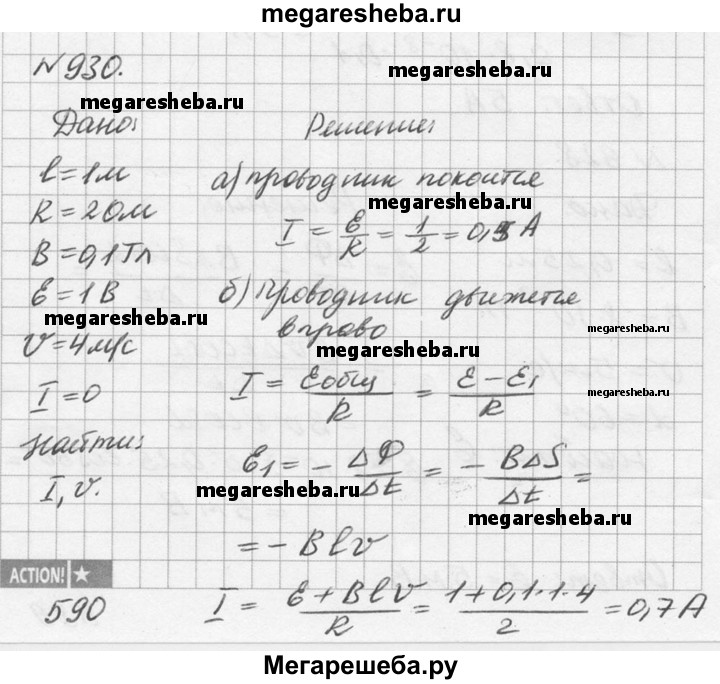 megaresheba.ru
№930.
megaresheba.ru
megaresheba.ru
Дано:
Решение:
l=1м
R=2Ом
B=0,1Тл
E=1В
megaresheba.ru
v=4м/с
I=0
Найти:
I, v.
а) проводник покоится
megaresheba.ru
I = E/R = 1/2 = 0,5 А
б) проводник движется
вправо
megaresheba.ru
megaresheba.ru
I = Eобщ/R = (E-E₁)/R
megaresheba.ru
E₁ = - ΔФ/Δt = - BΔS/Δt =
megaresheba.ru
megaresheba.ru
= - Blv
ACTION!
590
I = (E+Blv)/R = (1+0,1·1·4)/2 = 0,7 А
Мегарешеба.ру